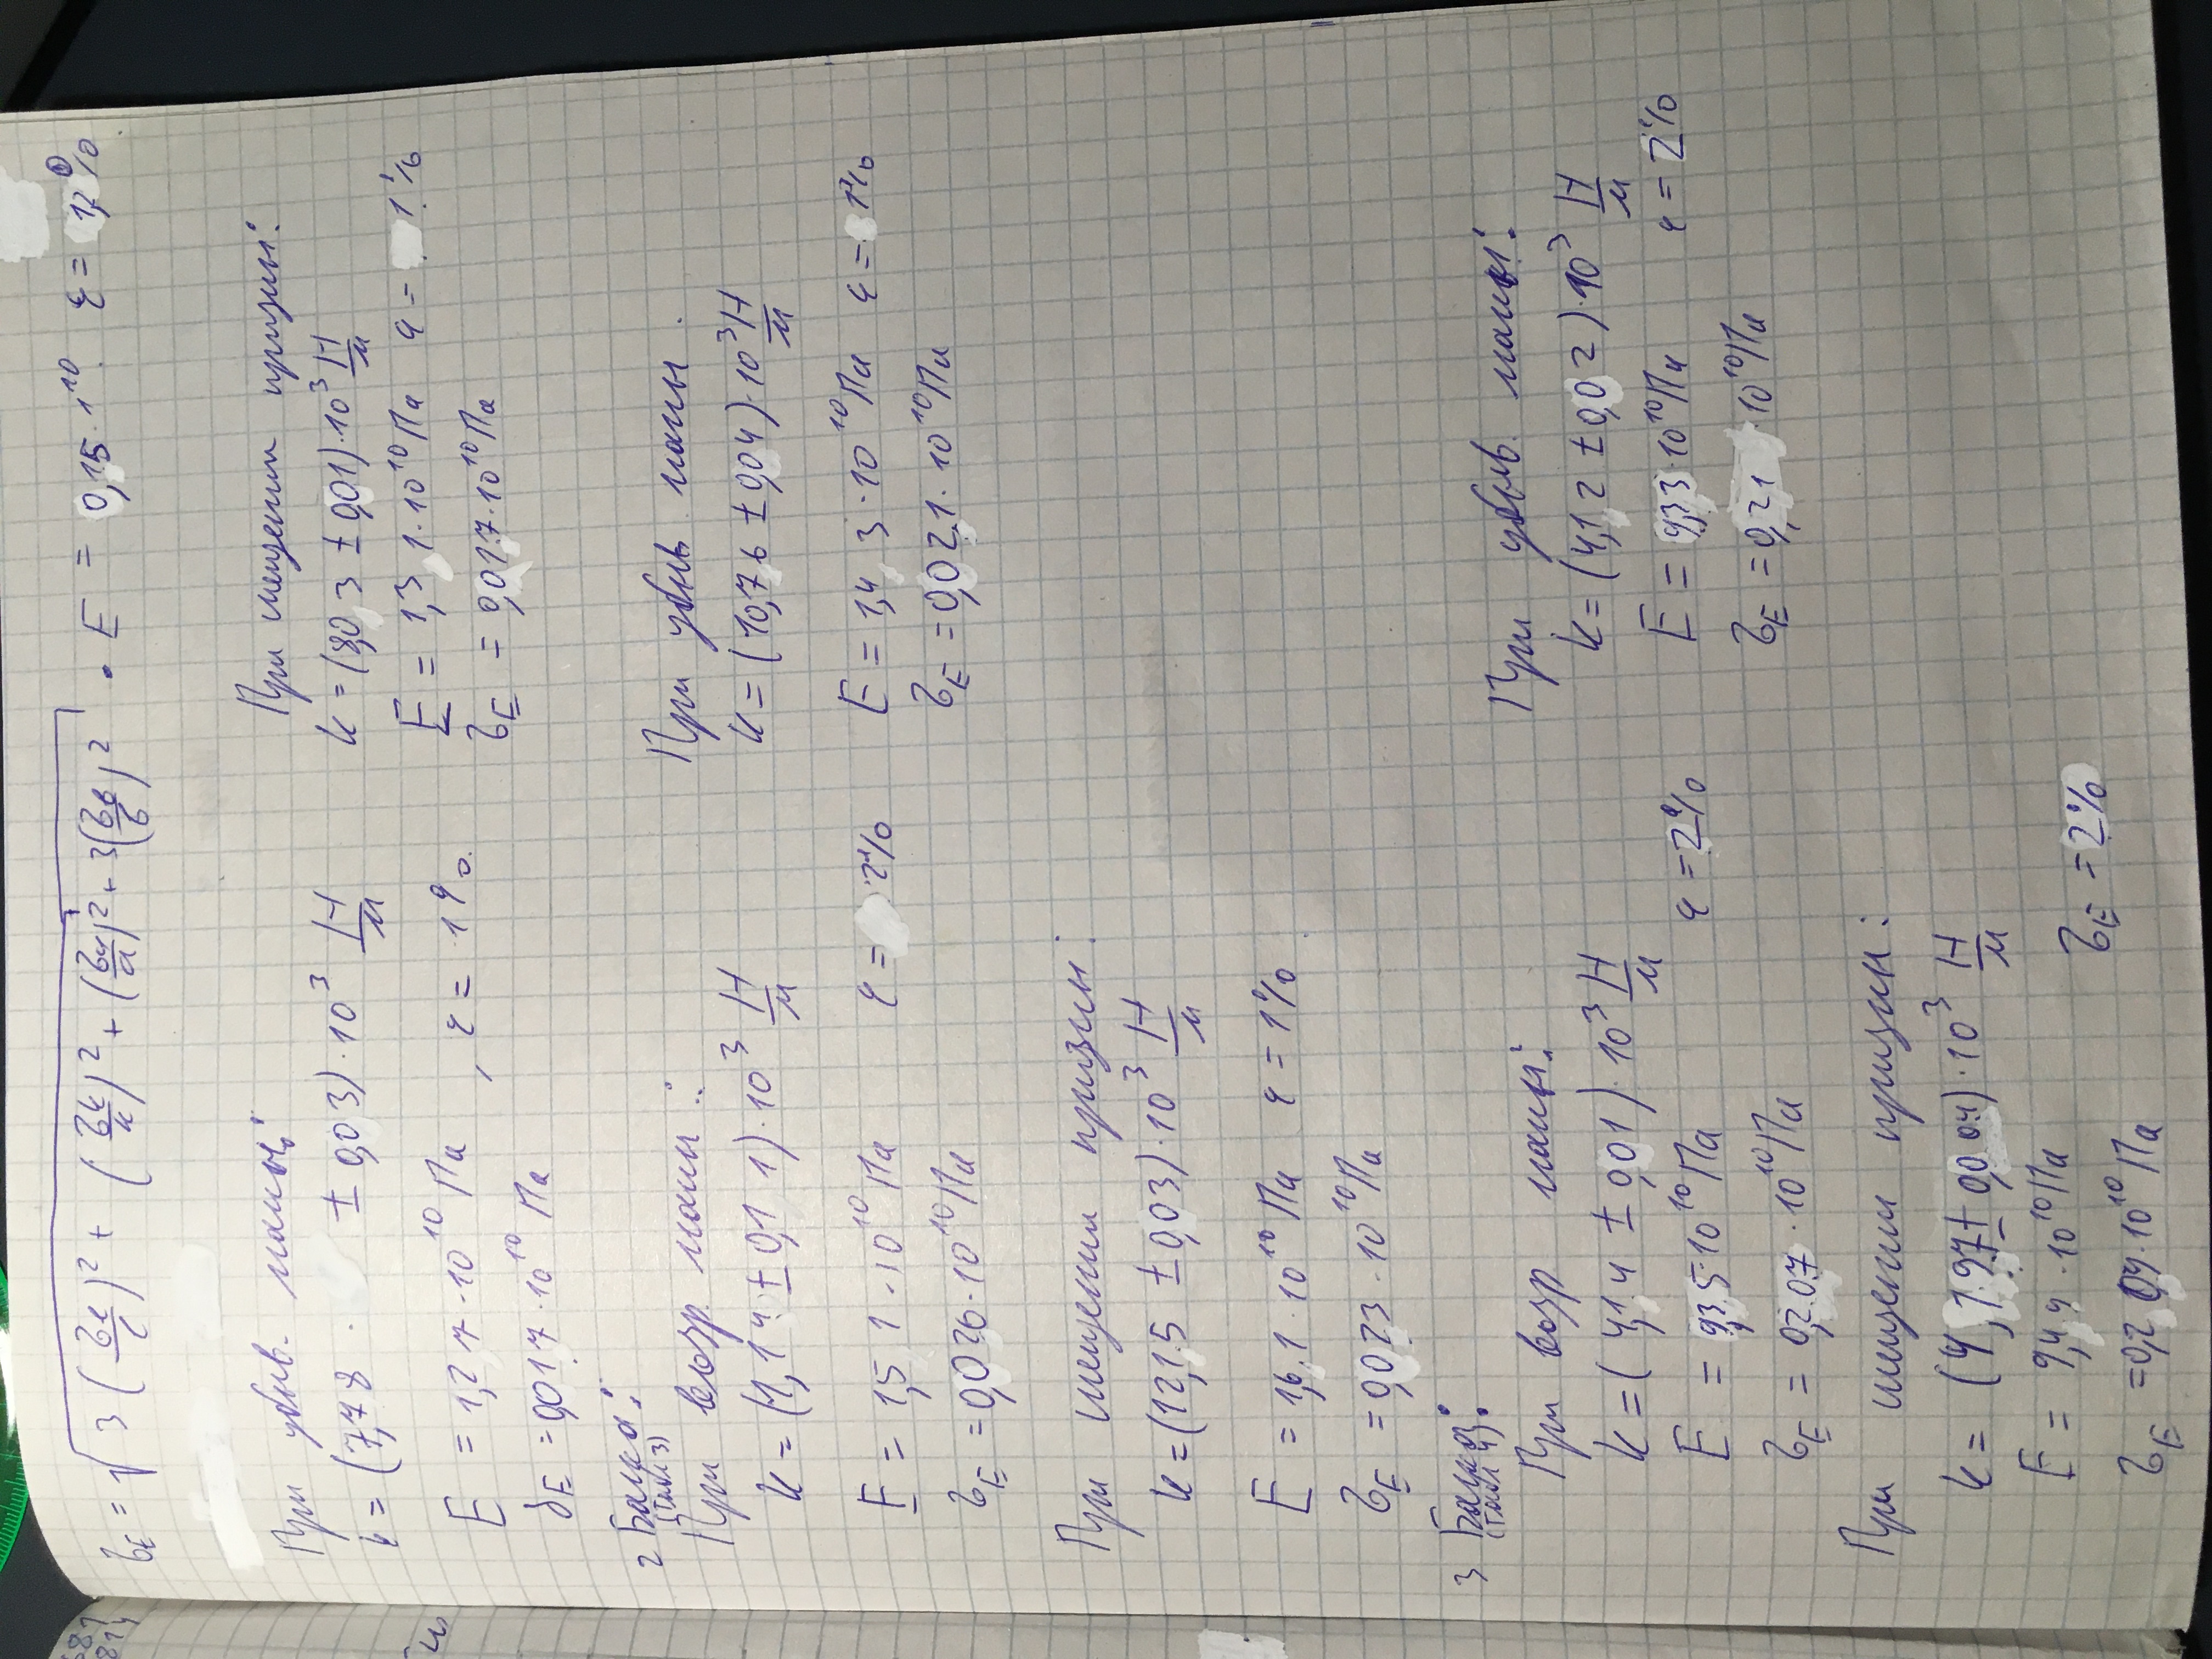 σ_E = √(3(σ_l/l)² + (σ_k/k)² + (σ_a/a)² + 3(σ_b/b)²) · E = 0,15·1¹⁰ ε = 1,2%
При убыв. массы:
k = (7,78 ± 0,03)·10³ Н/м
E = 1,27·10¹⁰ Па, ε = 1%
σ_E = 0,017·10¹⁰ Па
При смещении призмы:
k = (8,03 ± 0,01)·10³ Н/м
E = 1,31·10¹⁰ Па ε = 1%
σ_E = 0,017·10¹⁰ Па
2 Балка:
(Табл 3)
При возр. массы:
k = (1,14 ± 0,11)·10³ Н/м
E = 1,51·10¹⁰ Па ε = 2%
σ_E = 0,026·10¹⁰ Па
При убыв массы.
k = (10,76 ± 0,04)·10³ Н/м
E = 1,43·10¹⁰ Па ε = 1%
σ_E = 0,021·10¹⁰ Па
При смещении призмы:
k = (12,15 ± 0,03)·10³ Н/м
E = 1,61·10¹⁰ Па ε = 1%
σ_E = 0,023·10¹⁰ Па
3 Балка:
(Табл 4)
При возр массы:
k = (4,14 ± 0,01)·10³ Н/м
E = 9,35·10¹⁰ Па ε = 2%
σ_E = 0,207·10¹⁰ Па
При убыв. массы:
k = (4,12 ± 0,02)·10³ Н/м
E = 9,33·10¹⁰ Па ε = 2%
σ_E = 0,21·10¹⁰ Па
При смещении призмы:
k = (4,197 ± 0,004)·10³ Н/м
E = 9,49·10¹⁰ Па
σ_E = 2%
σ_E = 0,209·10¹⁰ Па